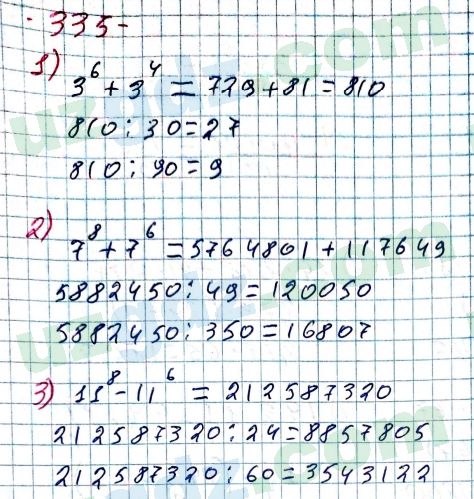 -335-
1) 3^6 + 3^4 = 729 + 81 = 810
810 : 30 = 27
810 : 90 = 9
2) 7^8 + 7^6 = 5764801 + 117649
5882450 : 49 = 120050
5882450 : 350 = 16807
3) 11^8 - 11^6 = 212587320
212587320 : 24 = 8857805
212587320 : 60 = 3543122